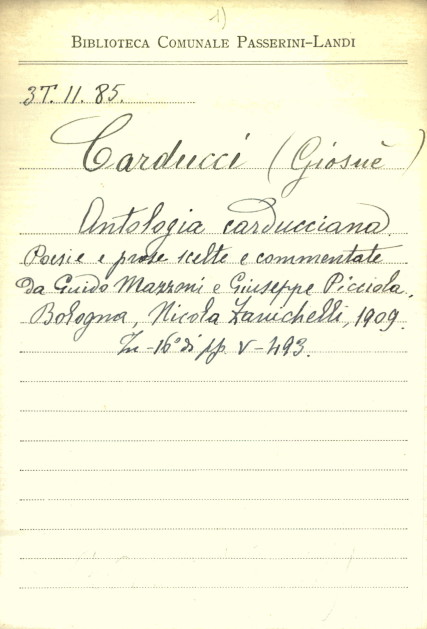 1)
BIBLIOTECA COMUNALE PASSERINI-LANDI
3T. 11. 85.
Carducci (Giosuè)
Antologia carducciana.
Poesie e prose scelte e commentate
da Guido Mazzoni e Giuseppe Picciola.
Bologna, Nicola Zanichelli, 1909.
In-16° di pp. V-493.